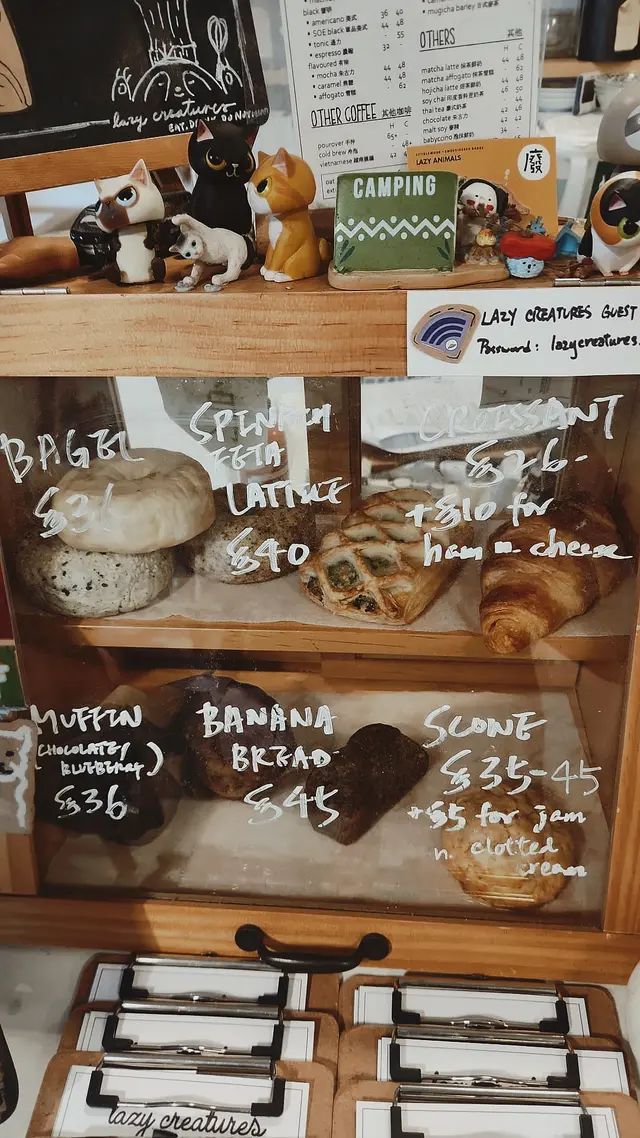 lazy creatures
EAT. DRINK. DO NOTHING
black 齋啡 36 40
• americano 美式 36 40
• SOE black 單品美式 44 48
• tonic 通力 - 55
• espresso 濃縮 32 -
flavoured 有味
• mocha 朱古力 44 48
• caramel 焦糖 44 48
• affogato 雪糕
OTHER COFFEE 其他咖啡
H C
pourover 手沖 65+
cold brew 冷泡
vietnamese
• mugicha barley 日式麥茶
OTHERS 其他
H C
matcha latte 抹茶鮮奶 44 48
matcha affogato 抹茶雪糕
hojicha latte 焙茶鮮奶
soy chai 印度香料豆奶茶
thai tea 泰式奶茶
chocolate 朱古力
malt soy 麥芽
babyccino 泡沫鮮奶
LAZY ANIMALS
廢
發
CAMPING
LAZY CREATURES GUEST
Password: lazycreatures.
BAGEL
$36
SPINACH
FETA
LATTICE
$40
CROISSANT
$26-
+$10 for
ham n. cheese
MUFFIN
(CHOCOLATE/
BLUEBERRY)
$36
BANANA
BREAD
$45
SCONE
$35-45
+$5 for jam
n. clotted
cream
lazy creatures